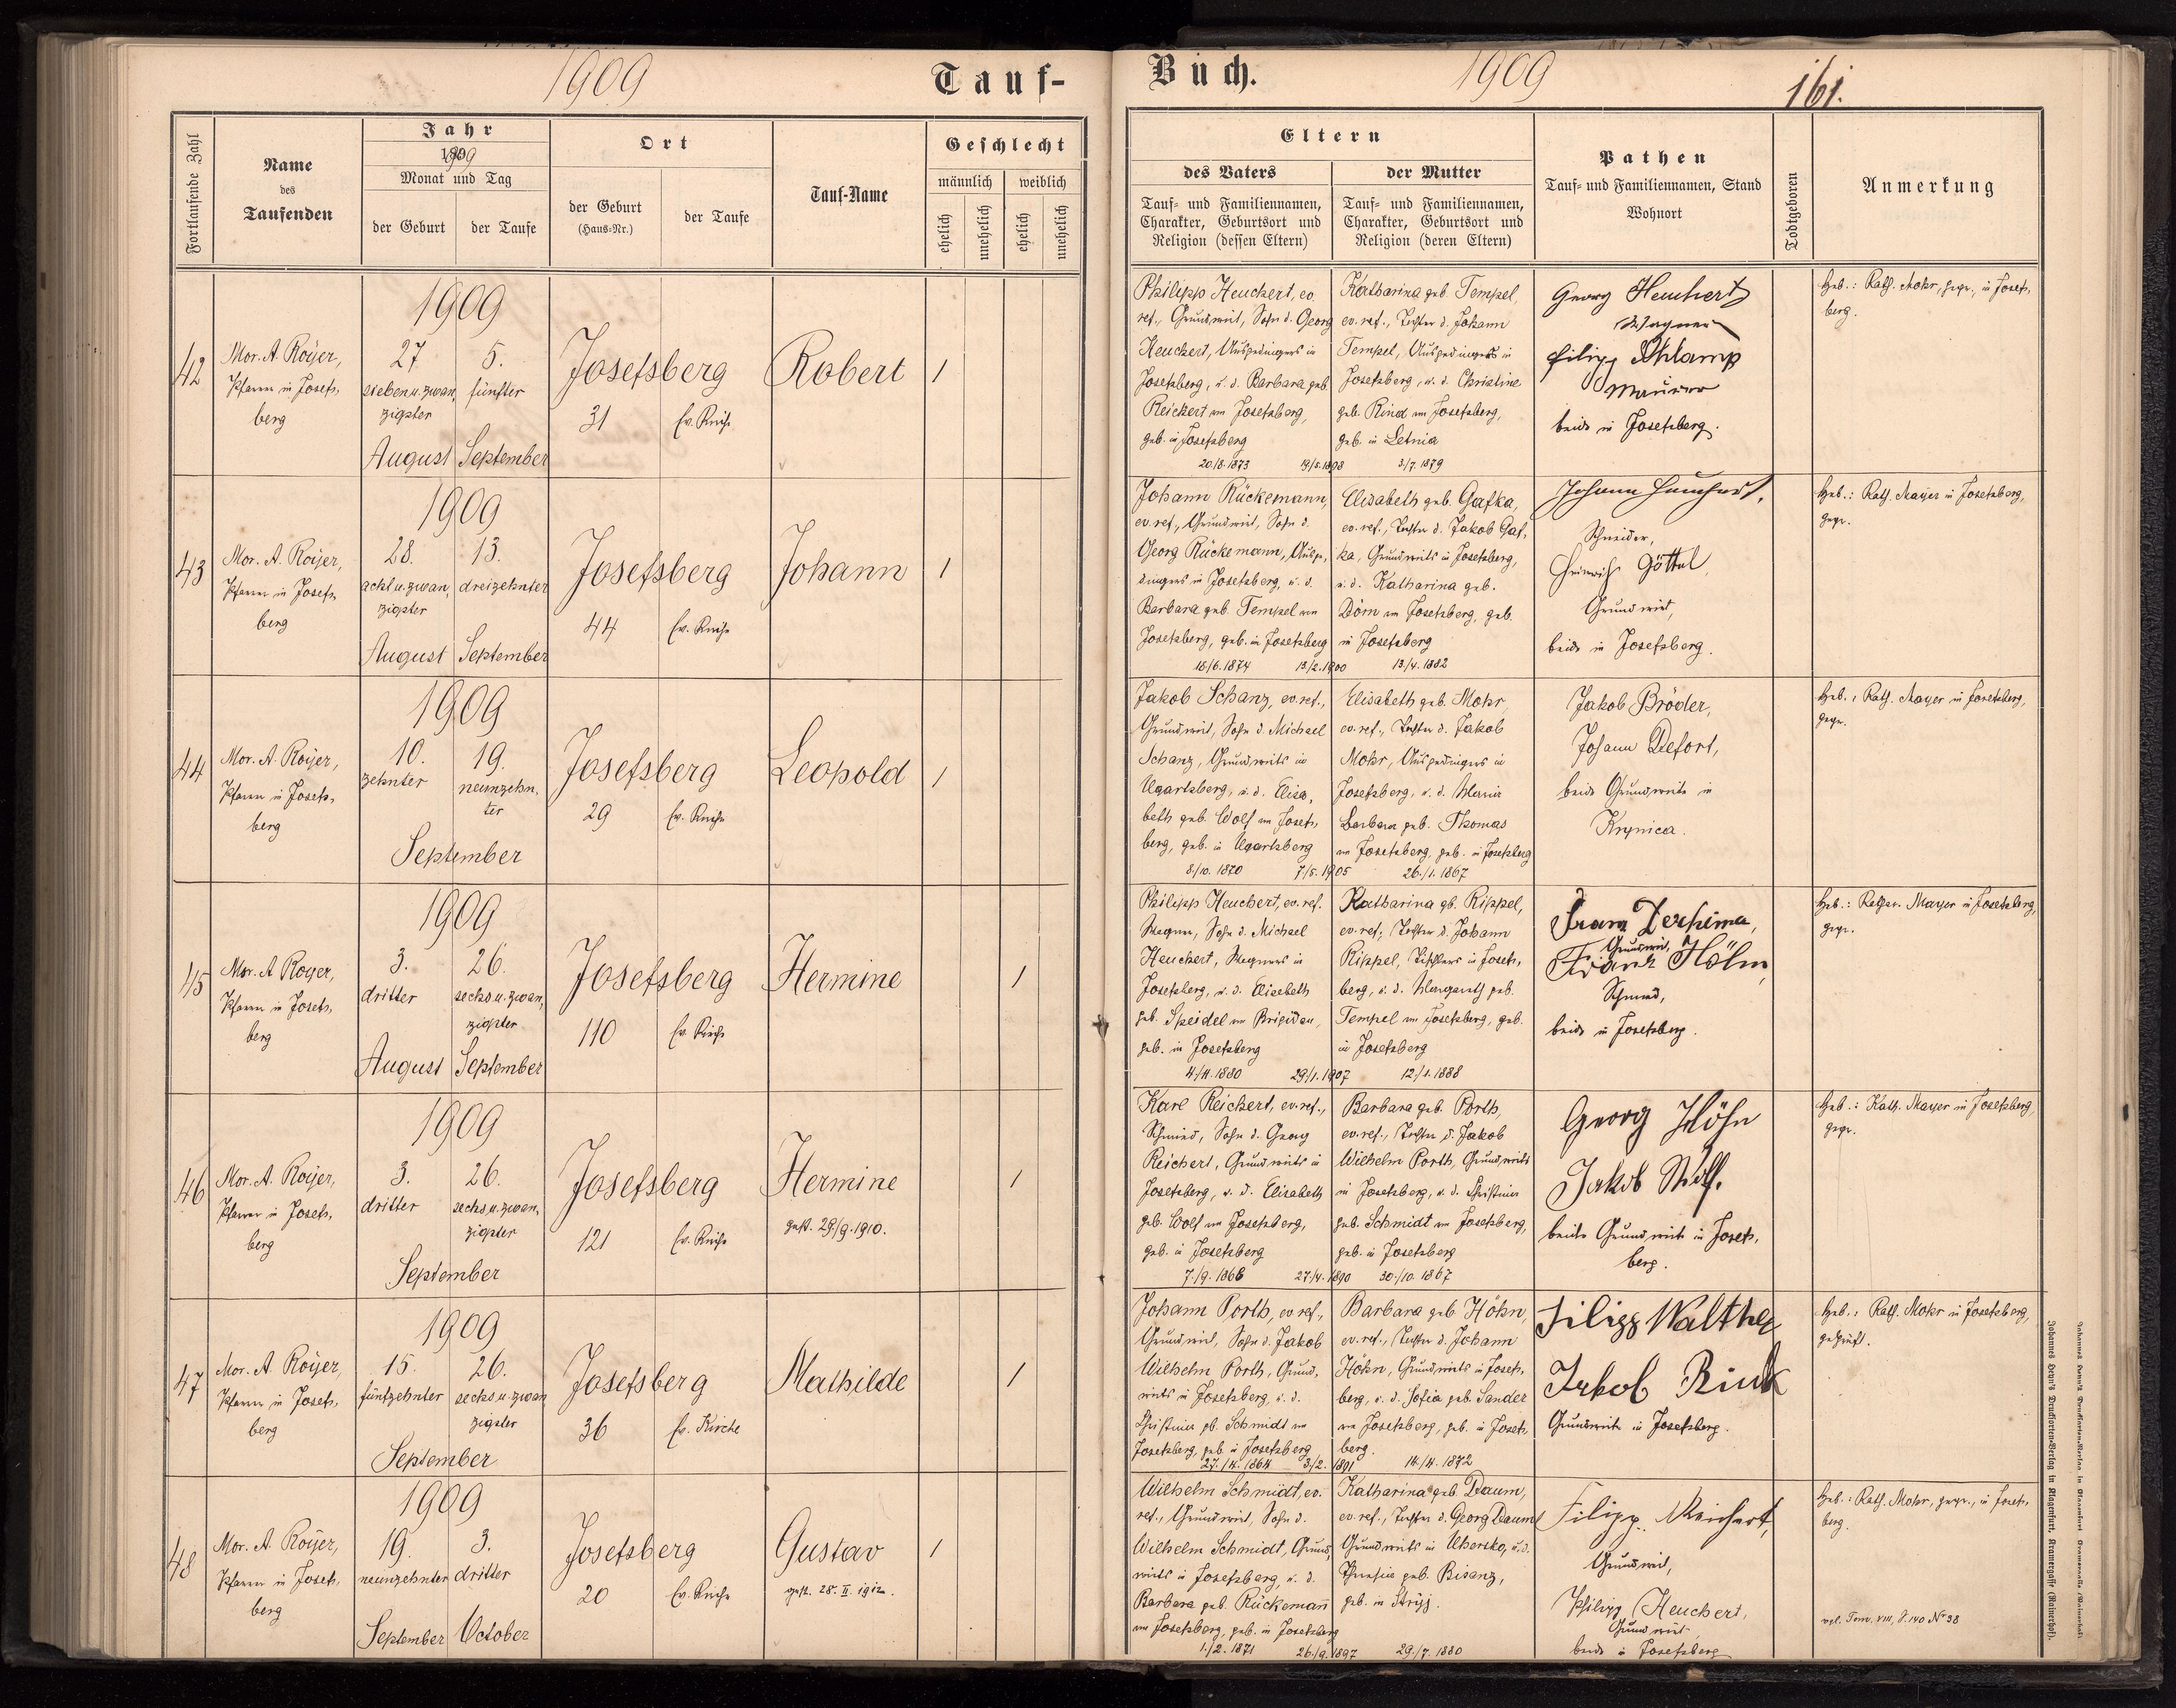 1909
Tauf-
Buch.
1909
161.
Fortlaufende Zahl
Name
des
Taufenden
Jahr
1909
Monat und Tag
der Geburt
der Taufe
Ort
der Geburt
(Haus-Nr.)
der Taufe
Tauf-Name
Geschlecht
männlich
weiblich
ehelich
unehelich
ehelich
unehelich
Eltern
des Vaters
Tauf- und Familiennamen,
Charakter, Geburtsort und
Religion (dessen Eltern)
der Mutter
Tauf- und Familiennamen,
Charakter, Geburtsort und
Religion (deren Eltern)
Pathen
Tauf- und Familiennamen, Stand
Wohnort
Todtgeboren
Anmerkung
42
Mor. A. Royer,
Pfarrer in Josefs-
berg
1909
27
sieben u. zwan-
zigster
August
5.
fünfter
September
Josefsberg
31
Ev. Kirche
Robert
1
Philipp Heuchert, ev.
ref., Grundwirt, Sohn d. Georg
Heuchert, Ausgedingers in
Josefsberg, u. d. Barbara geb.
Reichert in Josefsberg,
geb. in Josefsberg
20./8. 1873
19/5. 1898
Katharina geb. Tempel,
ev. ref., Tochter d. Johann
Tempel, Ausgedingers in
Josefsberg, u. d. Christine
geb. Rind in Josefsberg,
geb. in Letnia
3/7. 1879
Georg Heuchert
Wagner
Filipp Schlamp
Maurer
beide in Josefsberg.
Heb.: Kath. Mohr, gepr., in Josefs-
berg.
43
Mor. A. Royer,
Pfarrer in Josefs-
berg
1909
28.
acht u. zwan-
zigster
August
13.
dreizehnter
September
Josefsberg
44
Ev. Kirche
Johann
1
Johann Rückemann,
ev. ref., Grundwirt, Sohn d.
Georg Rückemann, Ausge-
dingers in Josefsberg, u. d.
Barbara geb. Tempel in
Josefsberg, geb. in Josefsberg
16/6. 1874
13/2. 1900
Elisabeth geb. Gafka,
ev. ref., Tochter d. Jakob Gaf-
ka, Grundwirts in Josefsberg,
u. d. Katharina geb.
Dörn in Josefsberg, geb.
in Josefsberg
13/4. 1882
Johann Heuchert,
Schneider,
Heinrich Göttel,
Grundwirt,
beide in Josefsberg.
Heb.: Kath. Mayer in Josefsberg,
gepr.
44
Mor. A. Royer,
Pfarrer in Josefs-
berg
1909
10.
zehnter
19.
neunzehn-
ter
September
Josefsberg
29
Ev. Kirche
Leopold
1
Jakob Schanz, ev. ref.,
Grundwirt, Sohn d. Michael
Schanz, Grundwirts in
Ugartsberg, u. d. Elisa-
beth geb. Wolf in Josefs-
berg, geb. in Ugartsberg
8/10. 1870
7/5. 1905
Elisabeth geb. Mohr,
ev. ref., Tochter d. Jakob
Mohr, Ausgedingers in
Josefsberg, u. d. Maria
Barbara geb. Thomas
in Josefsberg, geb. in Josefsberg
26./1. 1867
Jakob Bröder,
Johann Defort,
beide Grundwirte in
Krynica.
Heb.: Kath. Mayer in Josefsberg,
gepr.
45
Mor. A. Royer,
Pfarrer in Josefs-
berg
1909
3.
dritter
August
26.
sechs u. zwan-
zigster
September
Josefsberg
110
Ev. Kirche
Hermine
1
Philipp Heuchert, ev. ref.
Wagner, Sohn d. Michael
Heuchert, Wagners in
Josefsberg, u. d. Elisabeth
geb. Speidel in Brigidau,
geb. in Josefsberg
4./11. 1880
29/1. 1907
Katharina gb. Rippel,
ev. ref., Tochter d. Johann
Rippel, Tischlers in Josefs-
berg, u. d. Margareth geb.
Tempel in Josefsberg, geb.
in Josefsberg
12./1. 1888
Grundwirt,
Franz Höhn,
Schmied,
beide in Josefsberg.
Heb.: Mayer in Josefsberg,
gepr.
46
Mor. A. Royer,
Pfarrer in Josefs-
berg
1909
3.
dritter
26.
sechs u. zwan-
zigster
September
Josefsberg
121
Ev. Kirche
Hermine
gest. 29./9. 1910.
1
Karl Reichert, ev. ref.,
Schmied, Sohn d. Georg
Reichert, Grundwirts in
Josefsberg, u. d. Elisabeth
geb. Wolf in Josefsberg,
geb. in Josefsberg
7./9. 1866
27./4. 1890
Barbara geb. Porth,
ev. ref., Tochter d. Jakob
Wilhelm Porth, Grundwirts
in Josefsberg, u. d. Christina
geb. Schmidt in Josefsberg,
geb. in Josefsberg
30./10. 1867
Georg Höhn
Jakob Wolf,
beide Grundwirte in Josefs-
berg.
Heb.: Kath. Mayer in Josefsberg,
gepr.
47
Mor. A. Royer,
Pfarrer in Josefs-
berg
1909
15.
fünfzehnter
26.
sechs u. zwan-
zigster
September
Josefsberg
36
Ev. Kirche
Mathilde
1
Johann Porth, ev. ref.,
Grundwirt, Sohn d. Jakob
Wilhelm Porth, Grund-
wirts in Josefsberg, u. d.
Christina gb. Schmidt in
Josefsberg, geb. in Josefsberg
27./4. 1864
3/2. 1891
Barbara geb. Höhn,
ev. ref., Tochter d. Johann
Höhn, Grundwirts in Josefs-
berg, u. d. Sofia geb. Sander
in Josefsberg, geb. in Josefs-
berg.
14./4. 1872
Filipp Walther
Jakob Rink
Grundwirte in Josefsberg.
Heb.: Kath. Mohr in Josefsberg,
geprüft.
48
Mor. A. Royer,
Pfarrer in Josefs-
berg
1909
19.
neunzehnter
September
3.
dritter
October
Josefsberg
20
Ev. Kirche
Gustav
gest. 28. II. 1912.
1
Wilhelm Schmidt, ev.
ref., Grundwirt, Sohn d.
Wilhelm Schmidt, Grund-
wirts in Josefsberg, u. d.
Barbara geb. Rückemann
in Josefsberg, geb. in Josefsberg
1./2. 1871
26./9. 1897
Katharina geb. Daum,
ev. ref., Tochter d. Georg Daum
Grundwirts in Uhersko, u. d.
Theresia geb. Bisanz,
geb. in Stryj.
29./7. 1880
Filipp Reichert,
Grundwirt,
Philipp Heuchert,
Grundwirt,
beide in Josefsberg
Heb.: Kath. Mohr, gepr., in Josefs-
berg.
vgl. Tom. VIII, S. 140 No 38
Johannes Heyn's Drucksorten-Verlag in Klagenfurt, Kramergasse (Rainerhof).